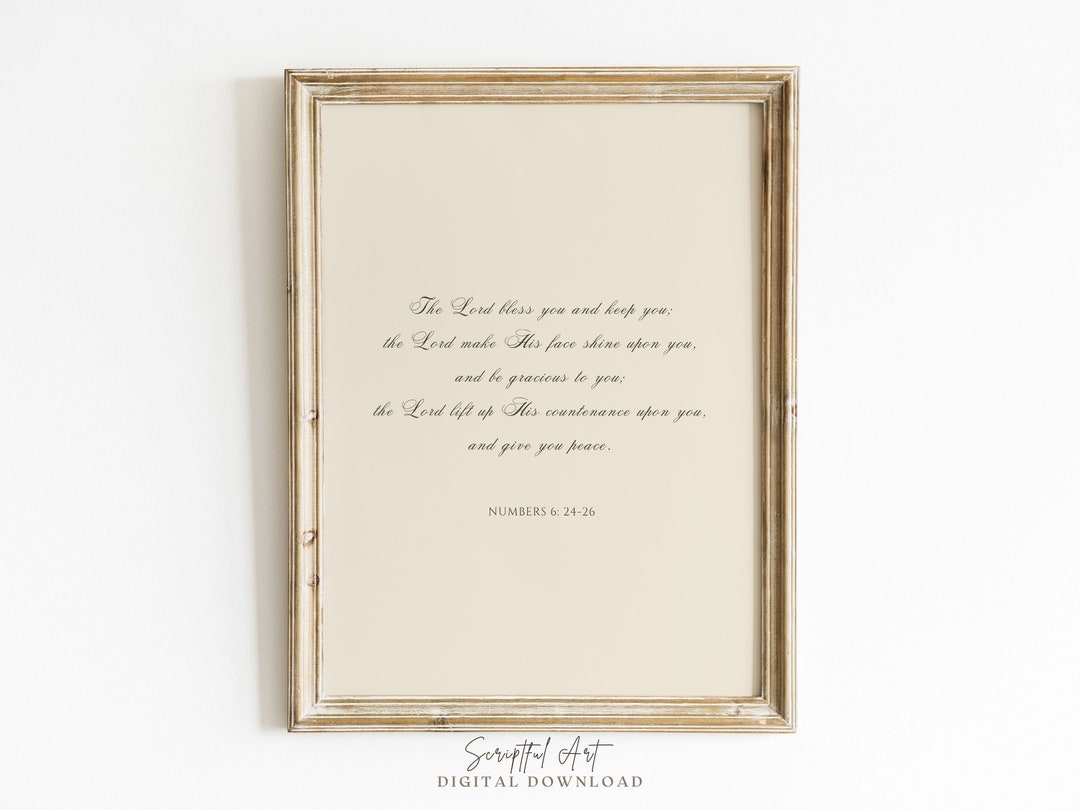 The Lord bless you and keep you;
the Lord make His face shine upon you,
and be gracious to you;
the Lord lift up His countenance upon you,
and give you peace.
NUMBERS 6: 24-26
Scriptful Art
DIGITAL DOWNLOAD